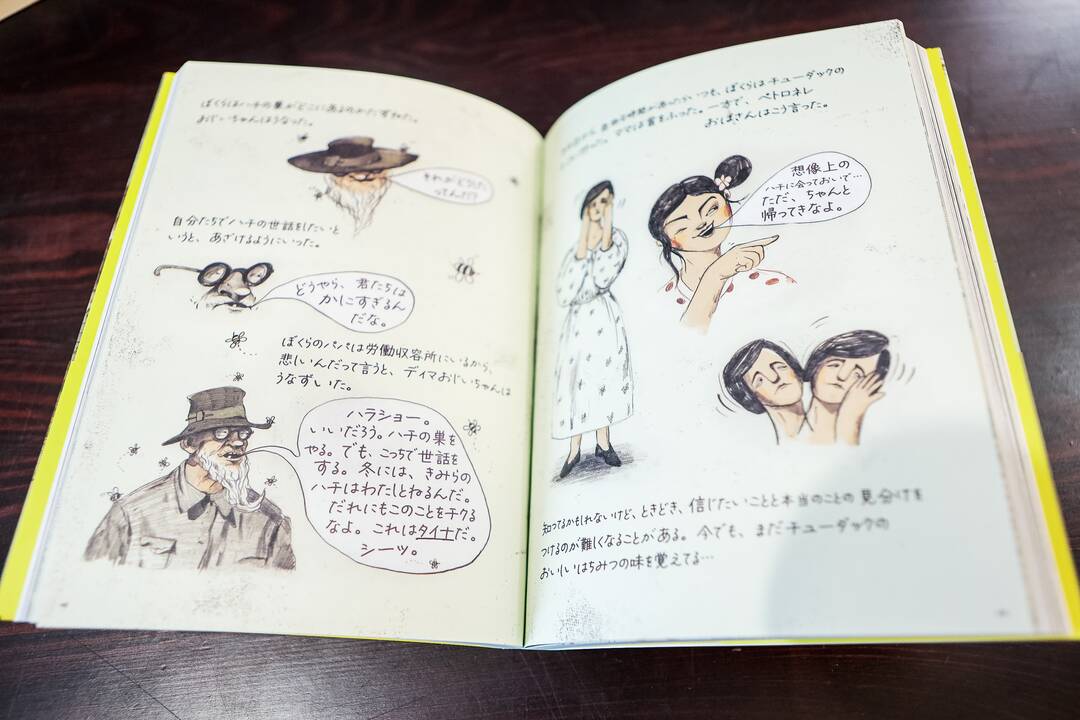 ぼくらはハチの巣がどこにあるのかたずねた。
おじいちゃんはうなった。
それがどうした
ってんだ?
自分たちでハチの世話をしたいと
いうと、あざけるようにいった。
どうやら、君たちは
かにすぎるん
だな。
ぼくらのパパは労働収容所にいるから、
悲しいんだって言うと、ディマおじいちゃんは
うなずいた。
ハラショー。
いいだろう。ハチの巣を
やる。でも、こっちで世話を
する。冬には、きみらの
ハチはわたしとねるんだ。
だれにもこのことをチクる
なよ。これはタイ士だ。
シーツ。
時間があったらいつも、ぼくらはチューダックの
ママは首をふった。一方で、ペトロネレ
おばさんはこう言った。
想像上の
ハチに会っておいで…
ただ、ちゃんと
帰ってきなよ。
知ってるかもしれないけど、ときどき、信じたいことと本当のことの見分けを
つけるのが難しくなることがある。今でも、まだチューダックの
おいしいはちみつの味を覚えてる…